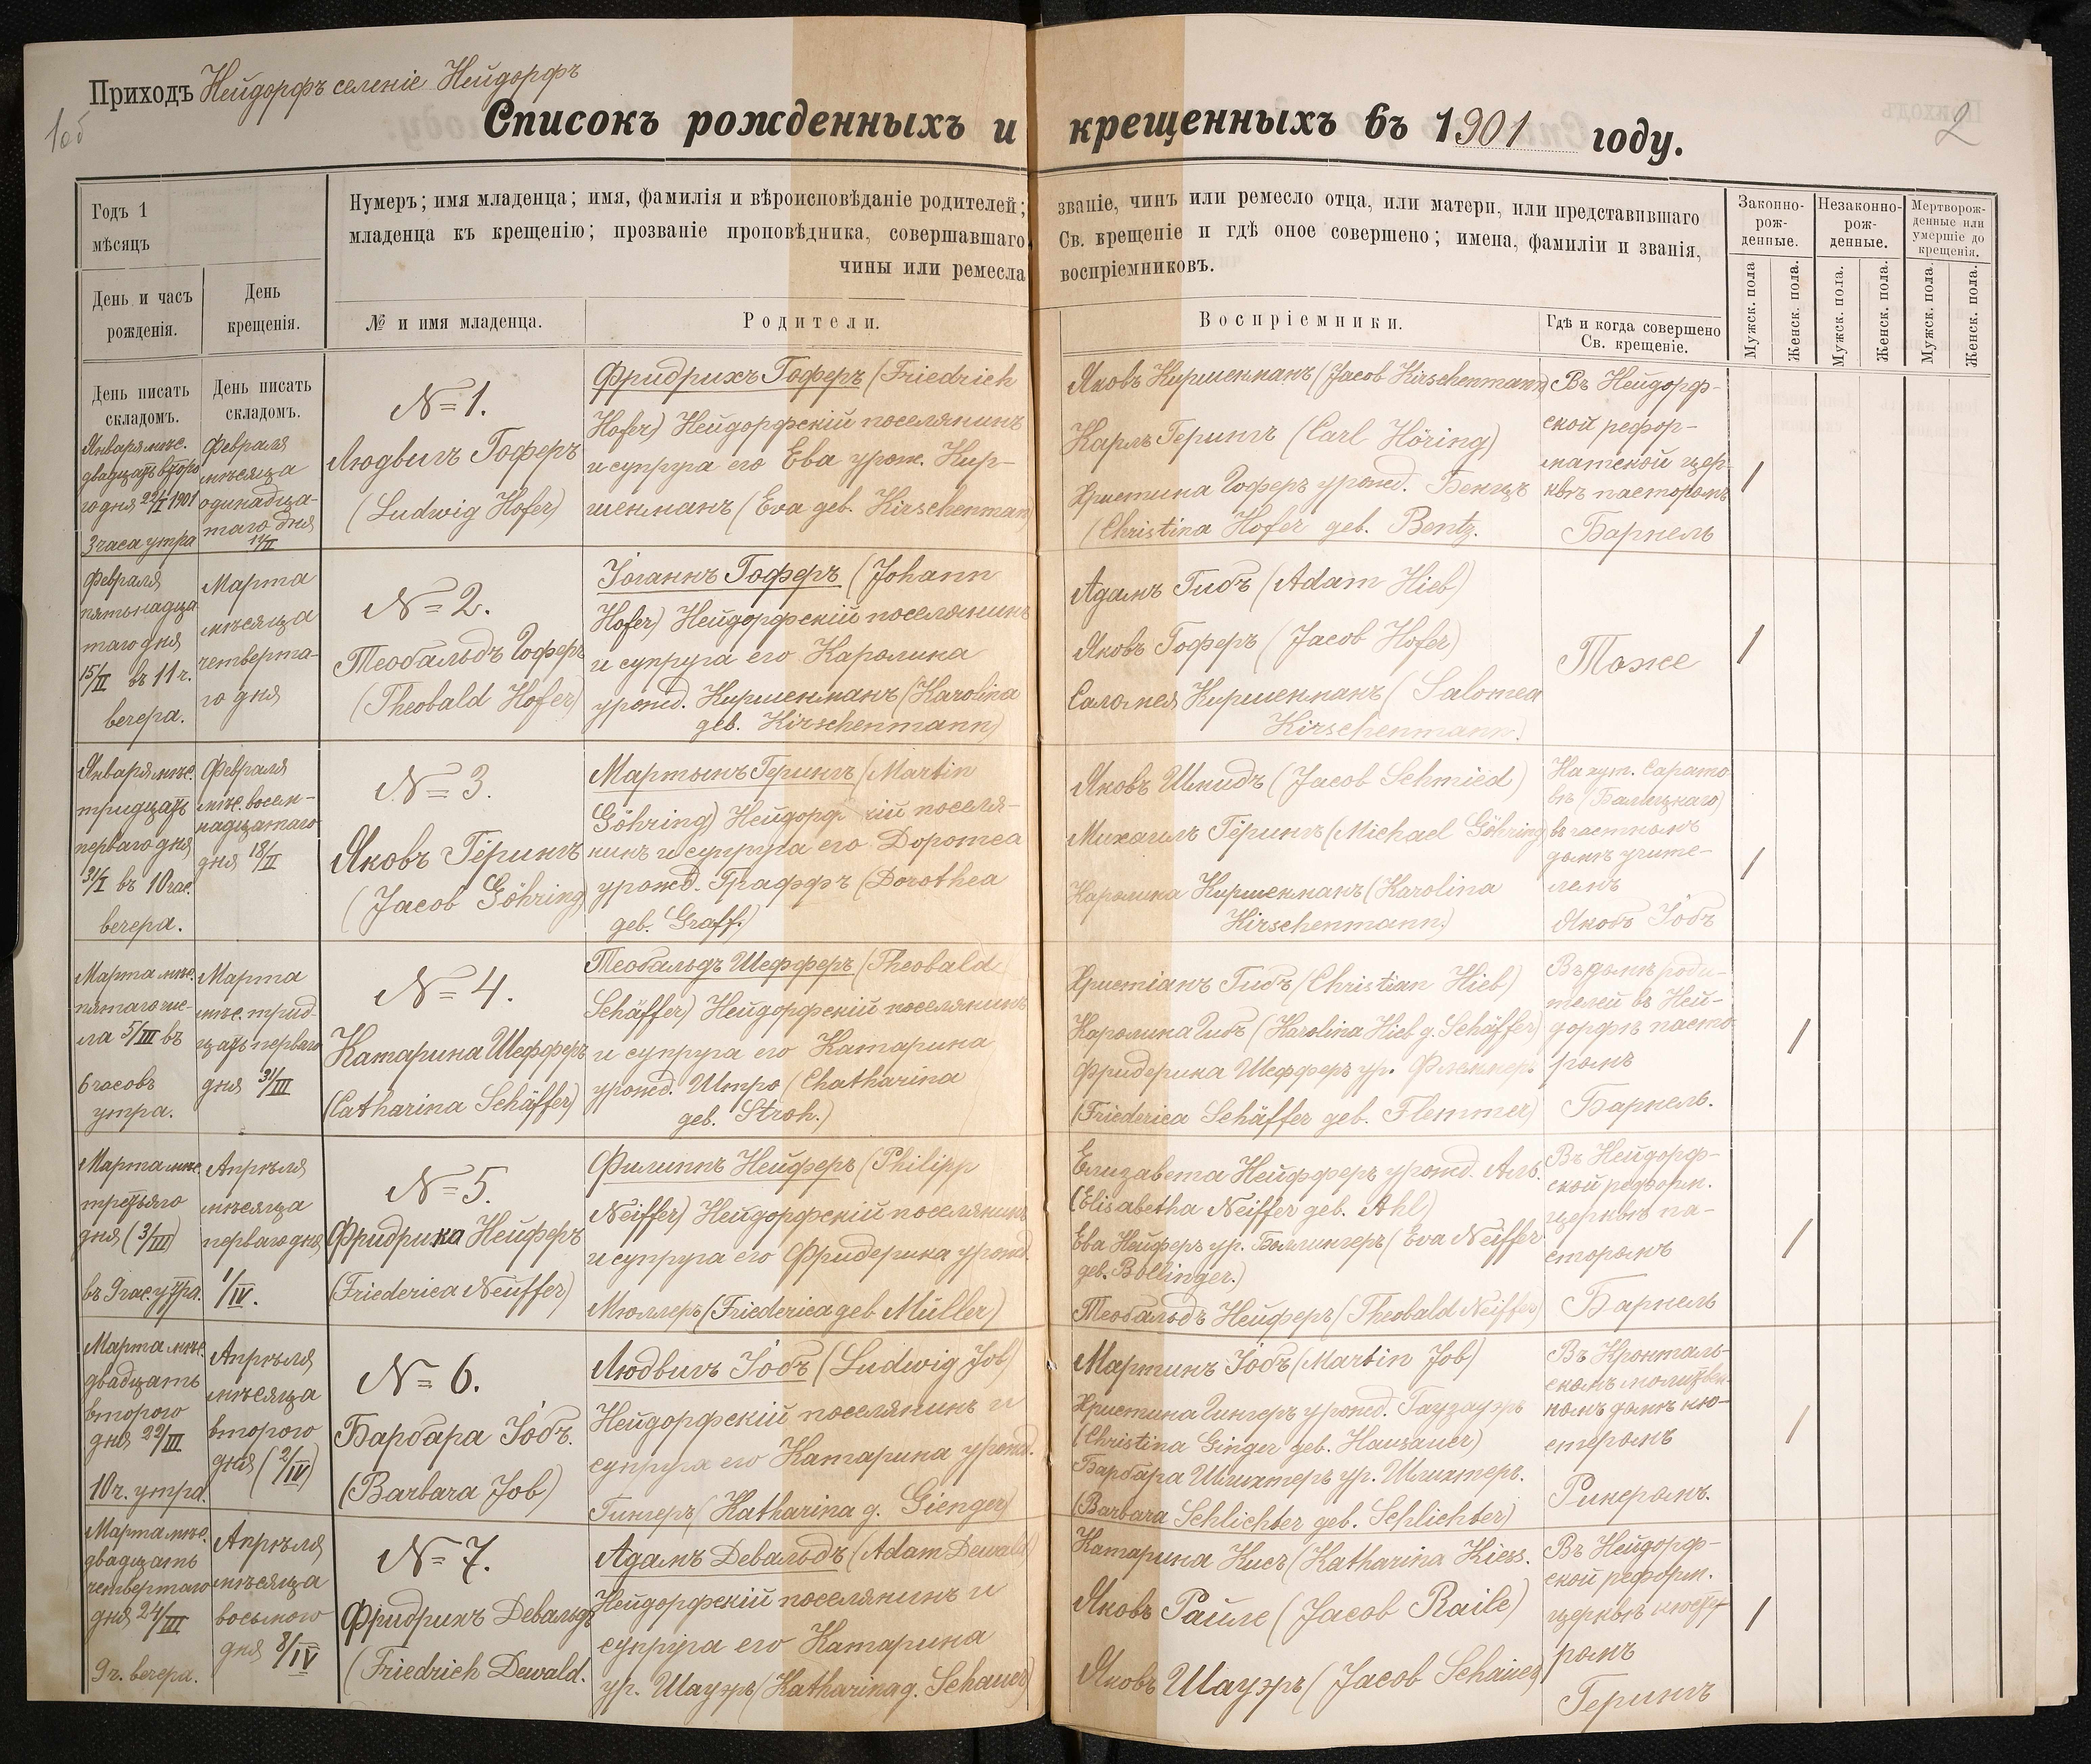 Приходъ Нейдорфъ селеніе Нейдорфъ
1об
2
Списокъ рожденныхъ и крещенныхъ въ 1901 году.
Годъ 1
мѣсяцъ
Нумеръ; имя младенца; имя, фамилія и вѣроисповѣданіе родителей; званіе, чинъ или ремесло отца, или матери, или представившаго
младенца къ крещенію; прозваніе проповѣдника, совершавшаго Св. крещеніе и гдѣ оное совершено; имена, фамиліи и званія,
чины или ремесла воспріемниковъ.
Законно-
рож-
денные.
Незаконно-
рож-
денные.
Мертворож-
денные или
умершіе до
крещенія.
День и часъ
рожденія.
День
крещенія.
№ и имя младенца.
Родители.
Воспріемники.
Гдѣ и когда совершено
Св. крещеніе.
Мужск. пола
Женск. пола.
Мужск. пола.
Женск. пола.
Мужск. пола.
Женск. пола.
День писать
складомъ.
День писать
складомъ.
Января мѣс.
двадцать второ
го дня 22/I 1901
3 часа утра
Февраля
мѣсяца
одинадца-
таго дня
11/II
№ 1.
Людвигъ Гоферъ
(Ludwig Hofer)
Фридрихъ Гоферъ (Friedrich
Hofer) Нейдорфскій поселянинъ
и супруга его Ева урож. Кир-
шенманъ (Eva geb. Kirschenman)
Яковъ Киршенманъ (Jacob Kirschenmann)
Карлъ Герингъ (Carl Höring)
Христина Гоферъ урожд. Бенцъ
(Christina Hofer geb. Bentz.
Въ Нейдорф-
ской рефор-
матской цер-
квѣ пасторомъ
Барнель
Февраля
пятьнадца
таго дня
15/II въ 11 ч.
вечера.
Марта
мѣсяца
четверта-
го дня
№ 2.
Теобальдъ Гоферъ
(Theobald Hofer)
Іоганнъ Гоферъ (Johann
Hofer) Нейдорфскій поселянинъ
и супруга его Каролина
урожд. Киршенманъ (Karolina
geb. Kirschenmann)
Адамъ Гибъ (Adam Hieb)
Яковъ Гоферъ (Jacob Hofer)
Саломея Киршенманъ (Salomea
Kirschenmann.)
Тоже
Января мѣс.
тридцать
перваго дня
31/I въ 10 час.
вечера.
Февраля
мѣс. восем-
надцатаго
дня 18/II
№ 3.
Яковъ Гёрингъ
(Jacob Göhring)
Мартынъ Герингъ (Martin
Göhring) Нейдорф кій поселя-
нинъ и супруга его Доротеа
урожд. Граффъ (Dorothea
geb. Graff.)
Яковъ Шмидъ (Jacob Schmied)
Михаилъ Гёрингъ (Michael Göhring)
Каролина Киршенманъ (Karolina
Kirschenmann.)
На хут. Сарато
въ
въ частномъ
домѣ учите-
лемъ
Яковъ Іобъ
Марта мѣс.
пятаго чис-
ла 5/III въ
6 часовъ
утра.
Марта
мѣс. трид-
цать перваго
дня 31/III
№ 4.
Катарина Шефферъ
(Catharina Schäffer)
Теобальдъ Шефферъ (Theobald
Schäffer) Нейдорфскій поселянинъ
и супруга его Катарина
урожд. Штро (Chatharina
geb. Stroh.)
Христіанъ Гибъ (Christian Hieb)
Каролина Гибъ (Karolina Hieb g. Schäffer)
Фридерика Шефферъ ур. Флеммеръ
(Friederica Schäffer geb. Flemmer)
Въ домѣ роди-
телей въ Ней-
дорфѣ пасто-
ромъ
Барнель.
Марта мѣс.
третьяго
дня (3/III)
въ 9 час. утра.
Апрѣля
мѣсяца
перваго дня
1/IV.
№ 5.
Фридрика Нейферъ
(Friederica Neuffer)
Филиппъ Нейферъ (Philipp
Neiffer) Нейдорфскій поселянинъ
и супруга его Фридерика урожд.
Мюллеръ (Friederica geb Müller)
Елизавета Нейфферъ урожд. Аль.
(Elisabetha Neiffer geb. Ahl)
Ева Нейферъ ур. Боллингеръ (Eva Neiffer
geb. Bollinger.)
Теобальдъ Нейферъ (Theobald Neiffer)
Въ Нейдорф-
ской реформ.
церквѣ па-
сторомъ
Барнель
Марта мѣс.
двадцать
второго
дня 22/III
10 ч. утра.
Апрѣля
мѣсяца
второго
дня (2/IV)
№ 6.
Барбара Іобъ.
(Barbara Job)
Людвигъ Іобъ (Ludwig Job)
Нейдорфскій поселянинъ и
супруга его Катарина урожд.
Гингеръ (Katharina g. Gienger)
Мартинъ Іобъ (Martin Job)
Христина Гингеръ урожд. Гаузауэръ
(Christina Ginger geb. Hausauer)
Барбара Шлихтеръ ур. Шлихтеръ.
(Barbara Schlichter geb. Schlichter)
Въ Кронталь-
скомъ молитвен-
номъ домѣ кю-
стеромъ
Рикеромъ.
Марта мѣс.
двадцать
четвертаго
дня 24/III
9 ч. вечера.
Апрѣля
мѣсяца
восьмого
дня 8/IV
№ 7.
Фридрихъ Девальдъ
(Friedrich Dewald.
Адамъ Девальдъ (Adam Dewald)
Нейдорфскій поселянинъ и
супруга его Катарина
ур. Шауэръ (Katharina g. Schauer)
Катарина Кисъ (Katharina Kiess.
Яковъ Райле (Jacob Raile)
Яковъ Шауэръ (Jacob Schauer)
Въ Нейдорф-
ской реформ.
церквѣ кюсте-
ромъ
Герингъ